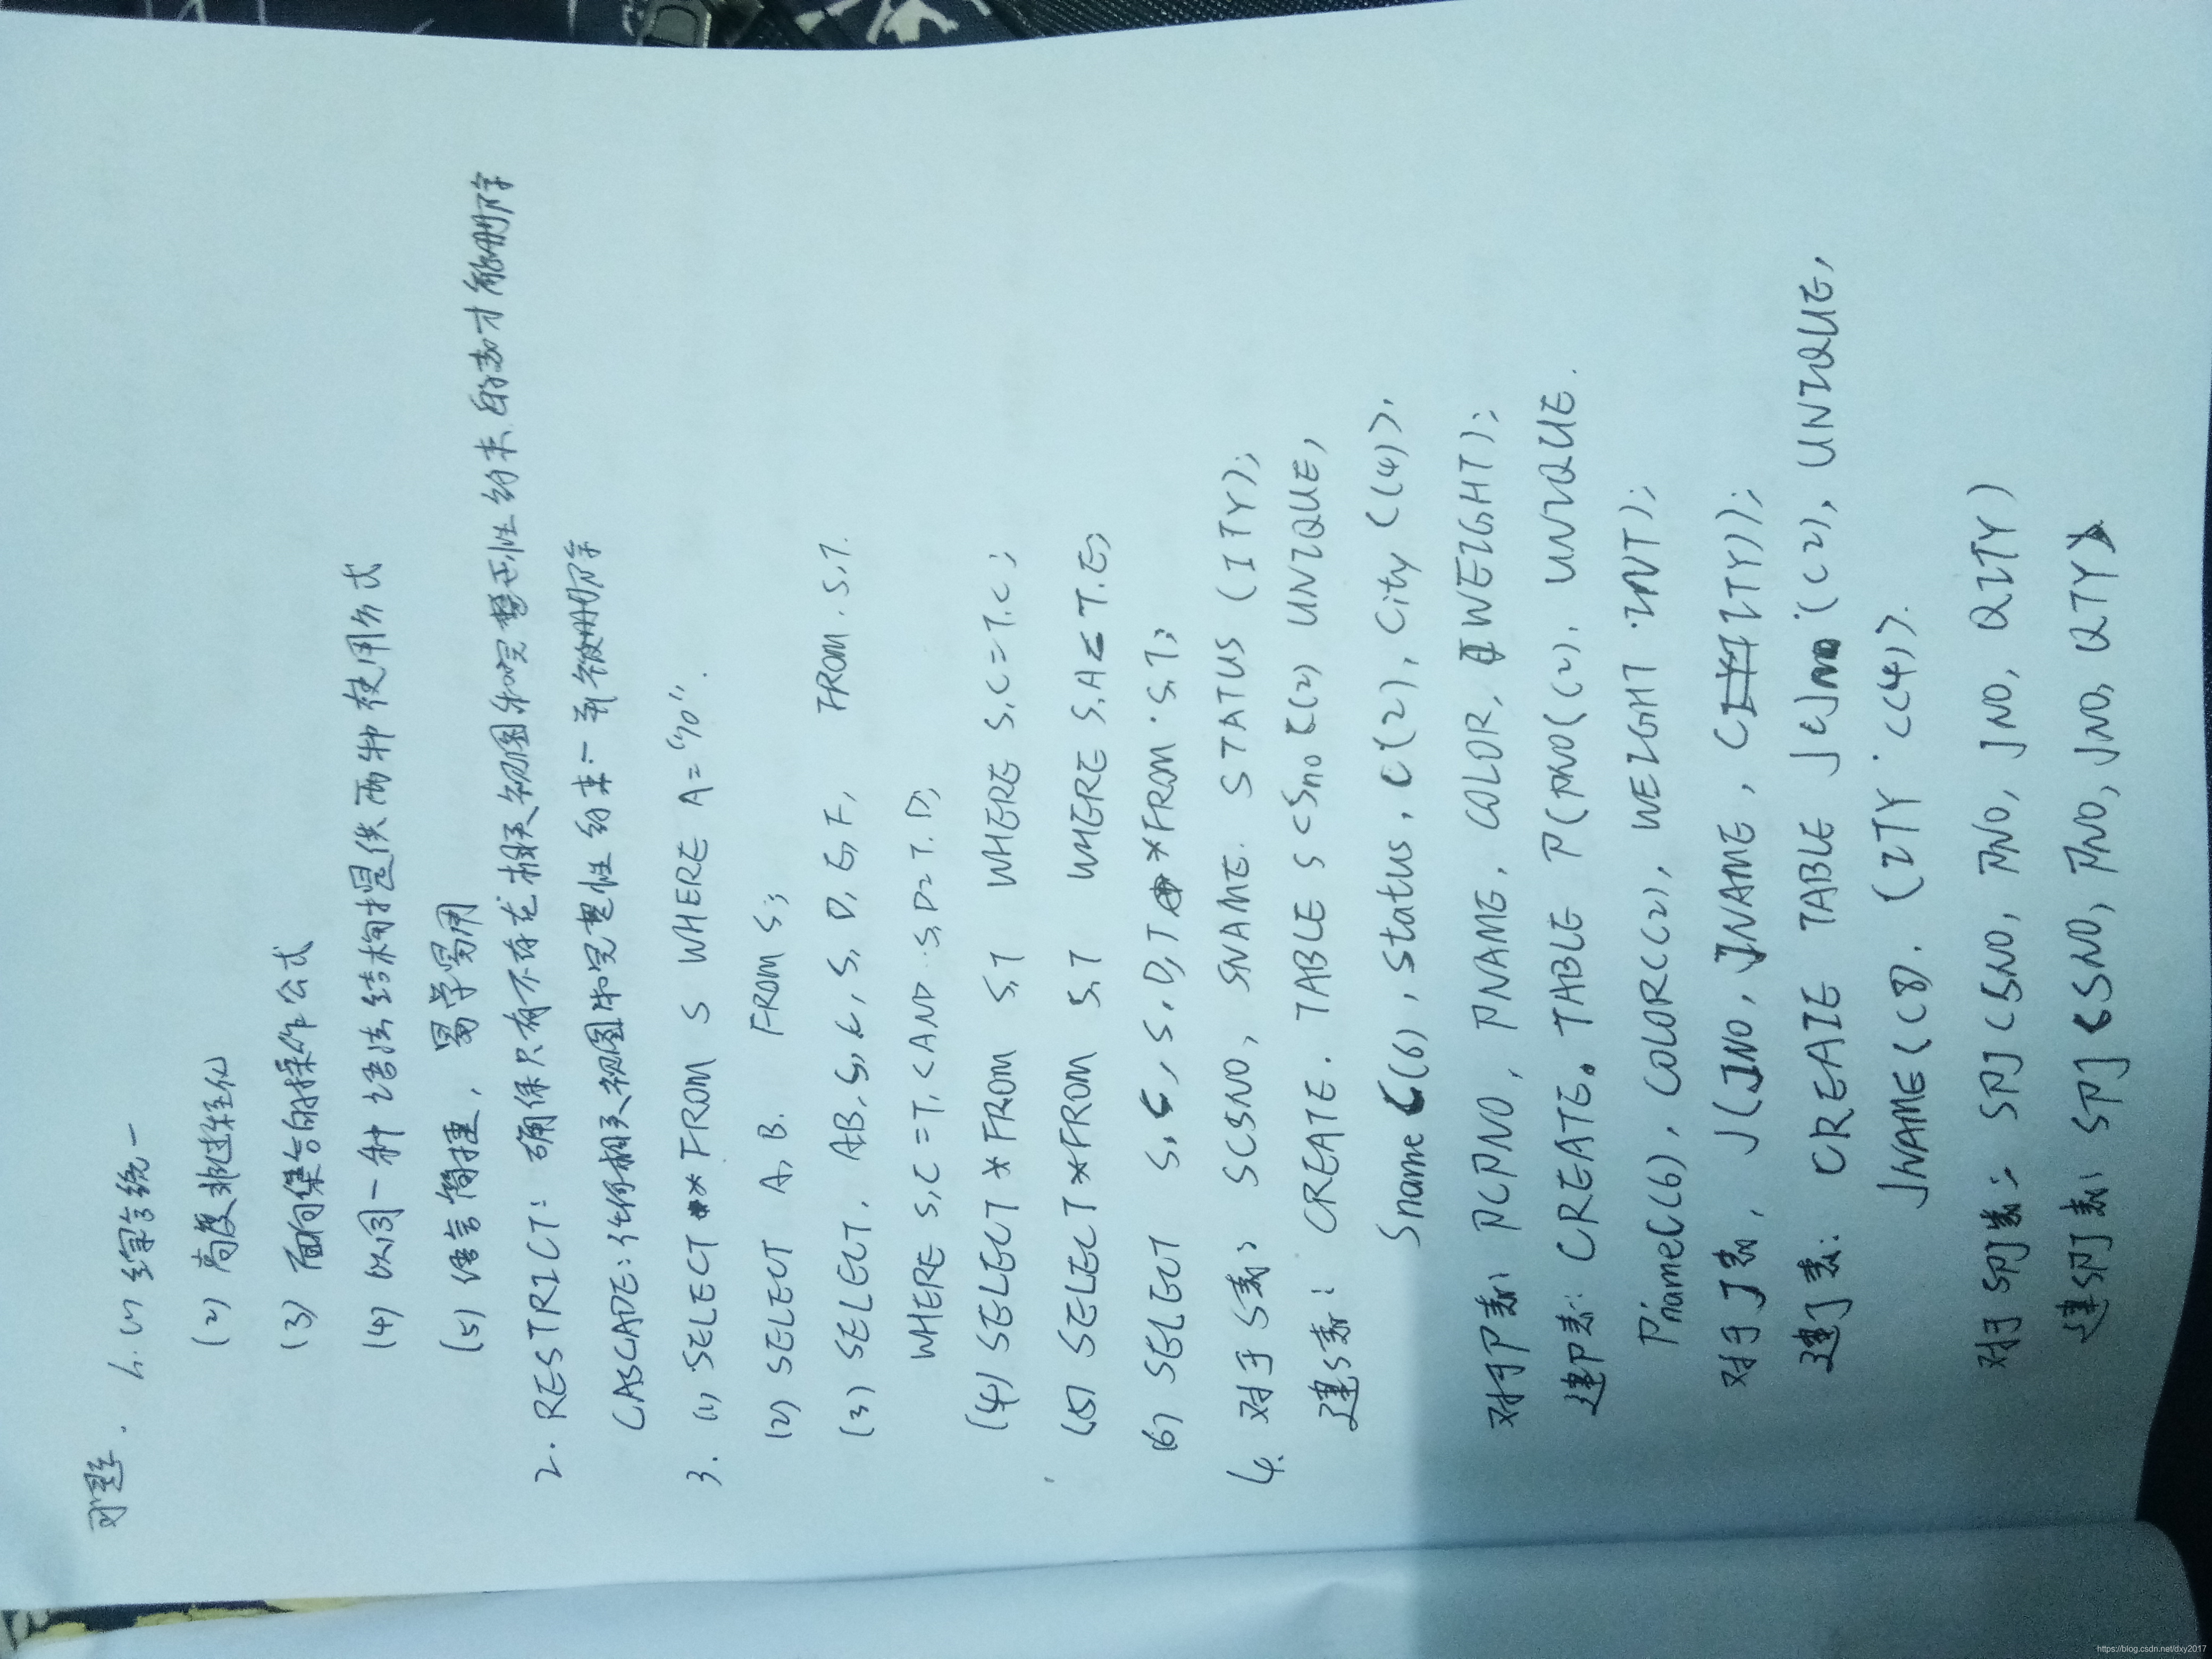 习题. 1. (1) 综合统一
(2) 高度非过程化
(3) 面向集合的操作公式
(4) 以同一种语法结构提供两种使用方式
(5) 语言简捷, 易学易用
2. RESTRICT: 确保只有不存在相关视图和完整性约束的表才能删除
CASCADE: 任何相关视图和完整性约束一并被删除
3. (1) SELECT *FROM S WHERE A="10".
(2) SELECT A, B. FROM S;
(3) SELECT. A,B, S,C, S, D, E, F, FROM. S,T.
WHERE S,C=T.C AND S,D=T.D;
(4) SELECT *FROM S,T WHERE S,C=T.C;
(5) SELECT *FROM S,T WHERE S,A<T.E;
(6) SELECT S,C, S.D, T *FROM S,T;
4. 对于S表: S(SNO, SNAME. STATUS (ITY);
建S表: CREATE. TABLE S (Sno C(2) UNIQUE,
Sname C(6), Status, C(2), City C(4)).
对于P表: P(PNO, PNAME, COLOR, WEIGHT);
建P表: CREATE. TABLE P(PNO C(2). UNIQUE.
Pname C(6), COLOR C(2), WEIGHT INT);
对于J表, J(JNO, JNAME, CITY));
建J表: CREATE TABLE J(Jno C(2), UNIQUE,
JNAME C(8). CITY C(4)).
对于SPJ表: SPJ(SNO, PNO, JNO, QITY)
建SPJ表: SPJ(SNO, PNO, JNO, QTY)
https://blog.csdn.net/dxy2017